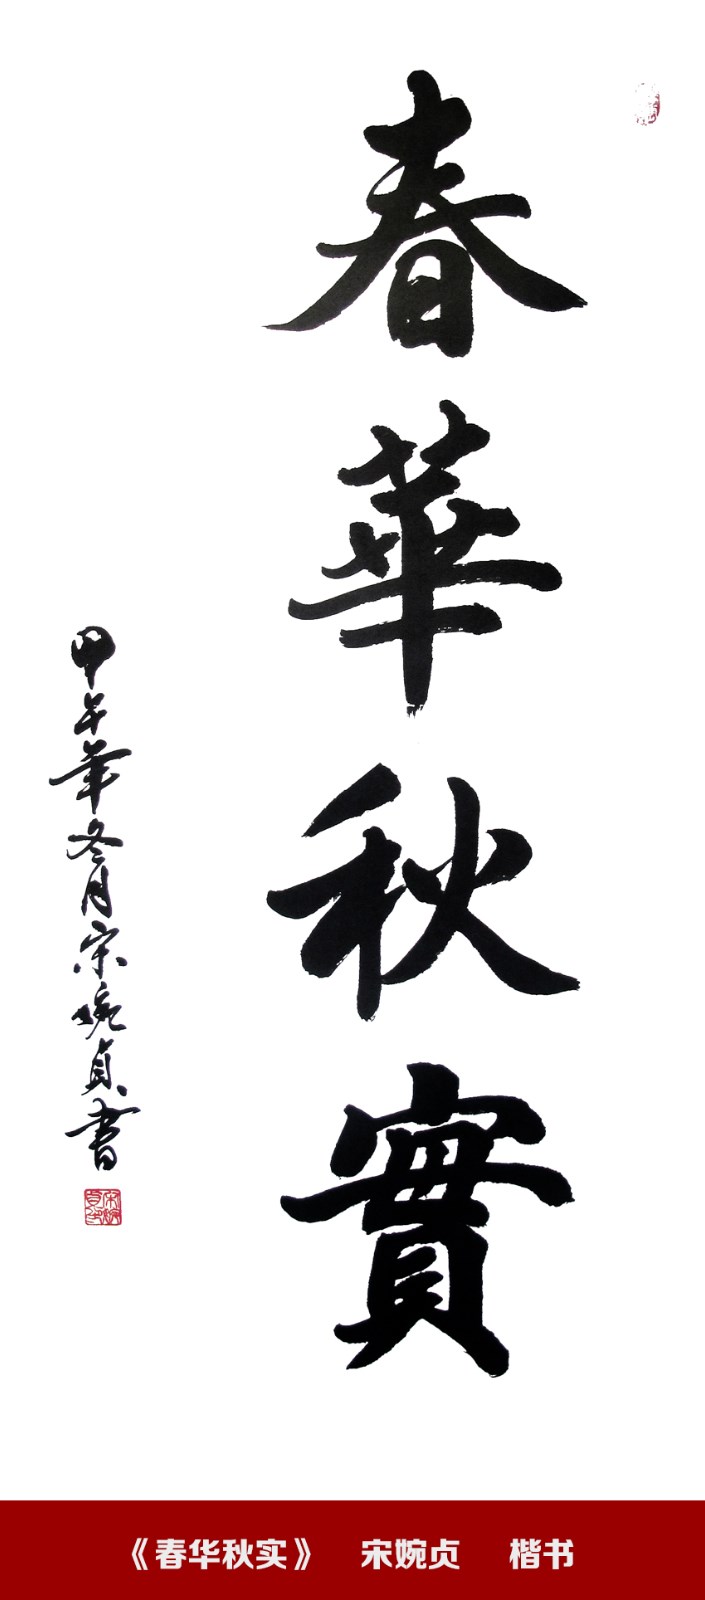 春華秋實
甲午年冬月宋婉貞書
《春华秋实》 宋婉贞 楷书